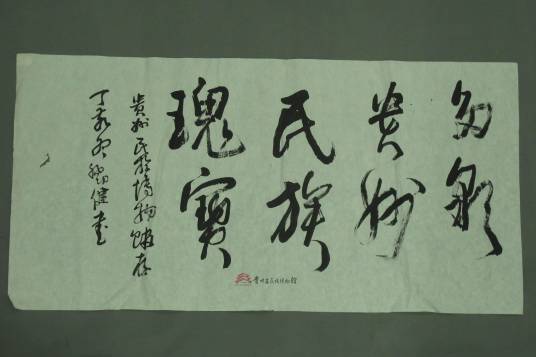 多彩
贵州
民族
瑰寶
贵州民族博物馆存
丁亥冬 健书
贵州省民族博物馆